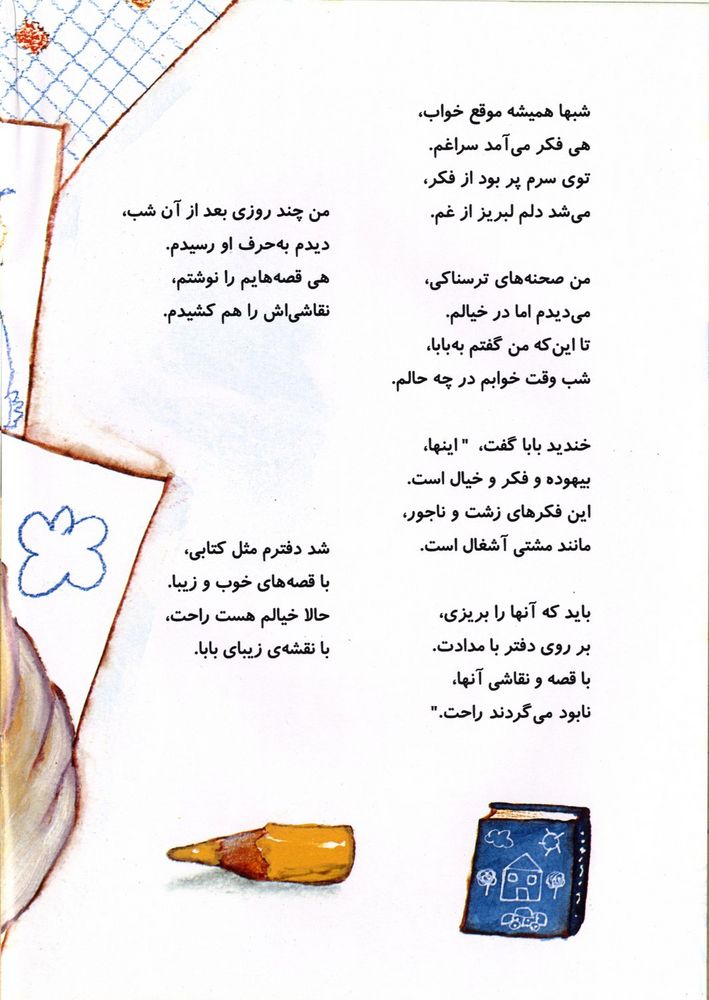 شبها همیشه موقع خواب،
هی فکر می‌آمد سراغم.
توی سرم پر بود از فکر،
می‌شد دلم لبریز از غم.
من صحنه‌های ترسناکی،
می‌دیدم اما در خیالم.
تا این‌که من گفتم به‌بابا،
شب وقت خوابم در چه حالم.
خندید بابا گفت، " اینها،
بیهوده و فکر و خیال است.
این فکرهای زشت و ناجور،
مانند مشتی آشغال است.
باید که آنها را بریزی،
بر روی دفتر با مدادت.
با قصه و نقاشی آنها،
نابود می‌گردند راحت."
من چند روزی بعد از آن شب،
دیدم به‌حرف او رسیدم.
هی قصه‌هایم را نوشتم،
نقاشی‌اش را هم کشیدم.
شد دفترم مثل کتابی،
با قصه‌های خوب و زیبا.
حالا خیالم هست راحت،
با نقشه‌ی زیبای بابا.